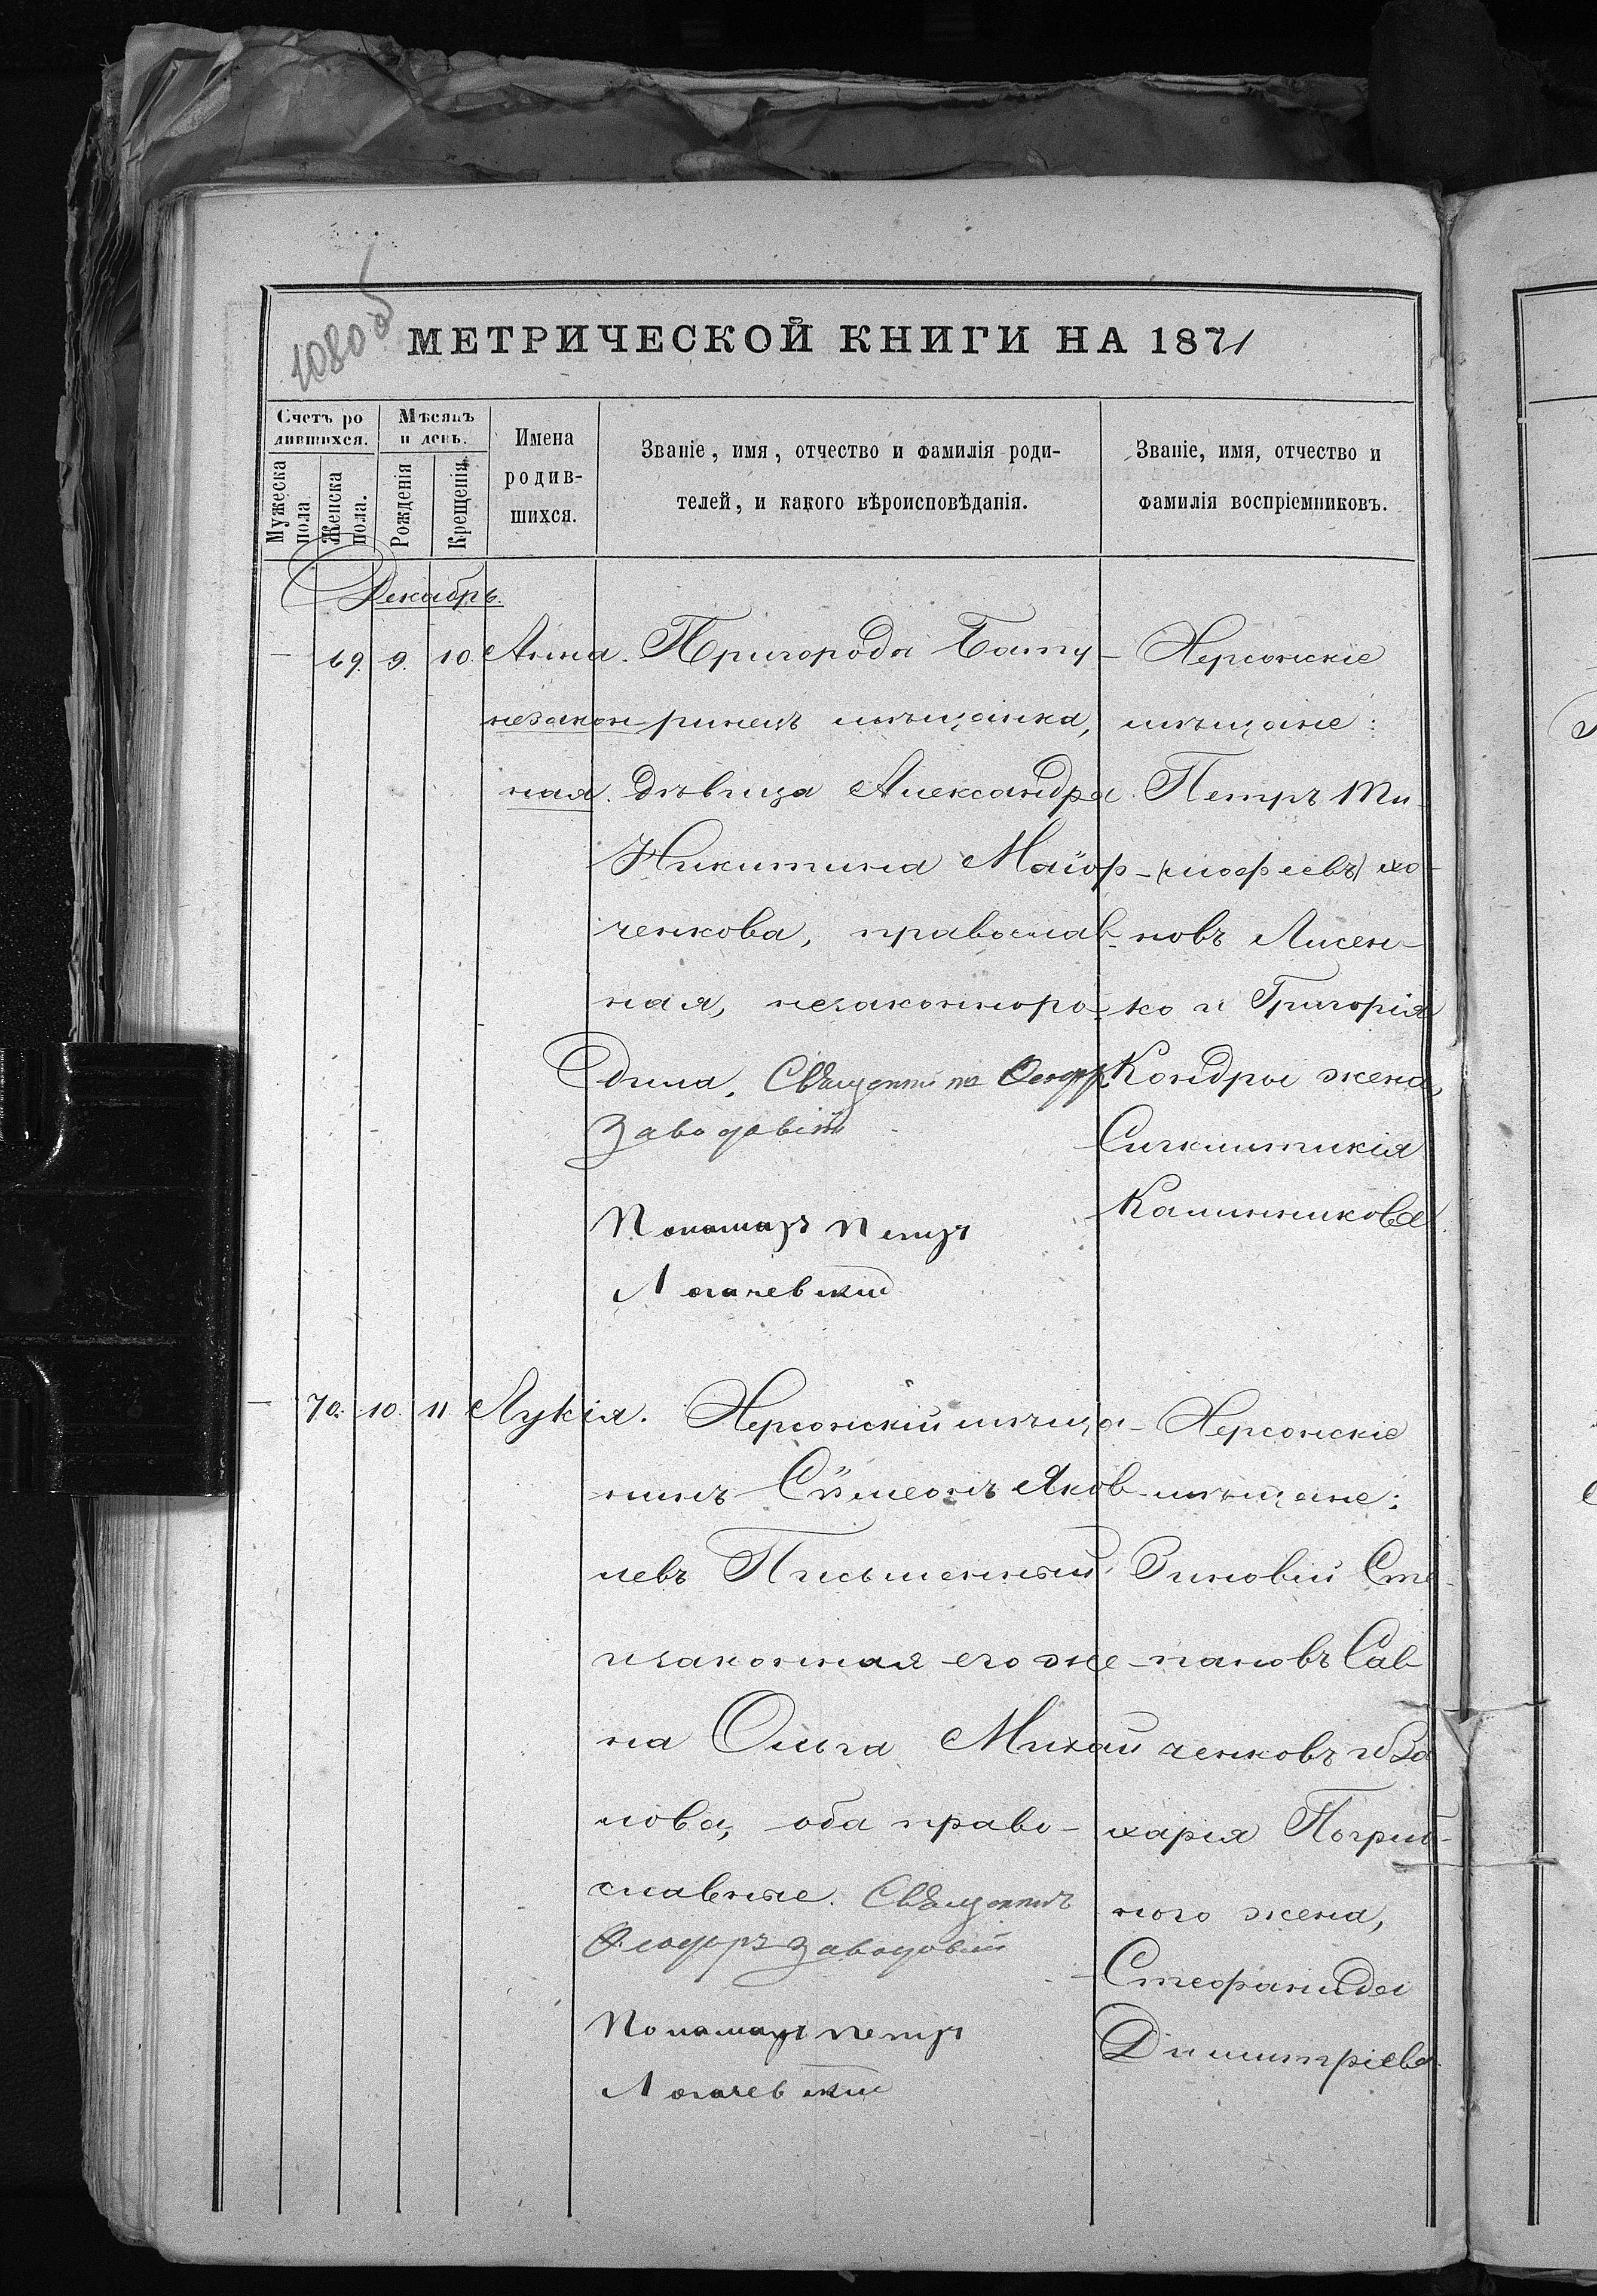 1080 об
МЕТРИЧЕСКОЙ КНИГИ НА 1871
Счетъ ро
дившихся.
Мѣсяцъ
и день.
Мужеска
пола
Женска
пола.
Рожденія
Крещенія
Имена
родив-
шихся.
Званіе, имя, отчество и фамилія роди-
телей, и какого вѣроисповѣданія.
Званіе, имя, отчество и
фамилія воспріемниковъ.
Декабрь.
— 69. 9. 10. Анна.
незакон-
ная.
Пригорода Бату-
ринецъ мѣщанка,
дѣвица Александра
Никитина Маіор-
ченкова, православ-
ная, незаконноро-
дила. Священникъ Ѳеодоръ
Заводовскій
Пономарь Петръ
Логачевскій
Херсонскіе
мѣщане:
Петръ Ти-
(моѳеевъ)
новъ Лисен-
ко и Григорія
Кондры жена,
Сигклитикія
Калинникова.
— 70. 10. 11. Лукія.
Херсонскій мѣща-
нинъ Сѵмеонъ Яков-
левъ Письменный
и законная его же-
на Ольга Михай
лова, оба право-
славные. Священникъ
Ѳеодоръ Заводовскій
Пономарь Петръ
Логачевскій
Херсонскіе
мѣщане:
Зиновій Сте-
пановъ Сав-
ченковъ и За
харія Погриб-
ного жена,
Стефанида
Димитріева.